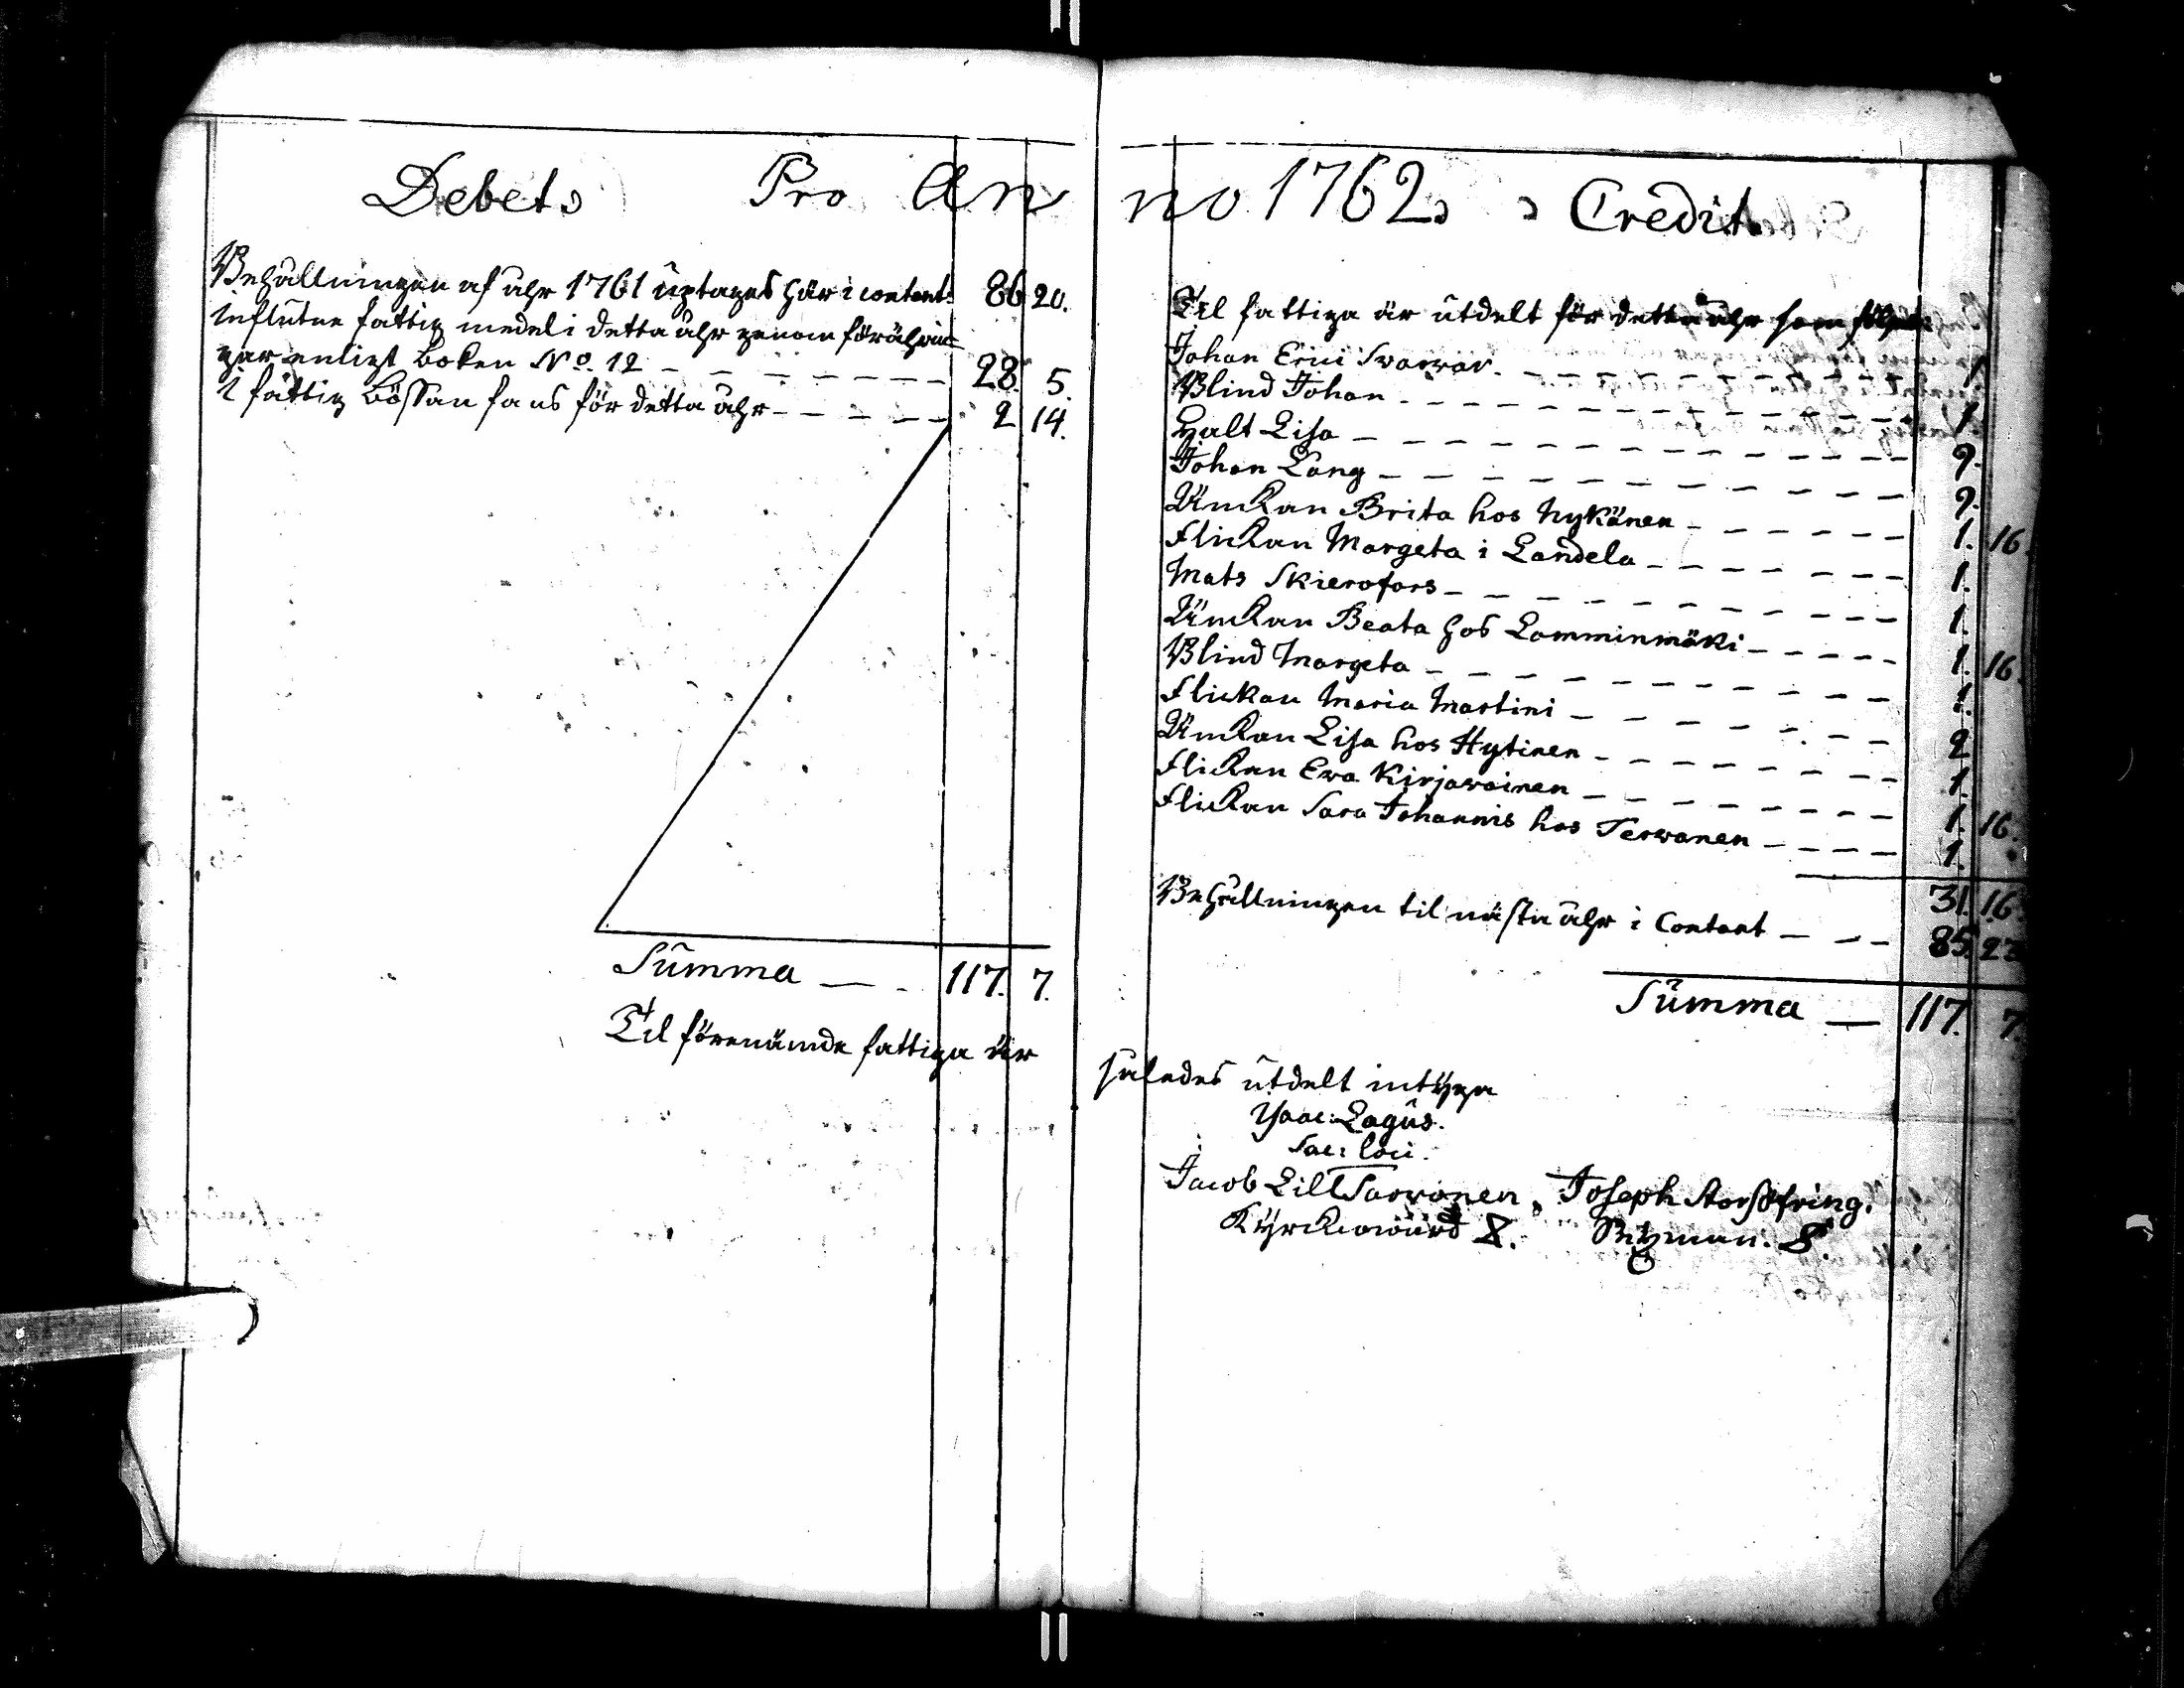 Debet. Pro Anno 1762. Credit.
Behållningen af åhr 1761 uptages här i contant: 86 20.
Influtne fattig medel i detta åhr genom förährin=
gar enligt boken No. 12 - - - - - - - 28. 5.
I fattig bössan fans för detta åhr - - - - - 2 14.
Summa — - 117. 7.
Til fattiga är utdelt för detta åhr som följer
Johan Erici Swarvar - - - - - - -
Blind Johan - - - - - - -
Halt Lisa - - - - - - - 9.
Johan Lang - - - - - - - 9.
Änckan Brita hos Nykänen - - - - - 1. 16.
Flickan Margeta i Landela - - - - - 1.
Mats Skierofors - - - - - - - 1.
Änckan Beata hos Lamminmäki - - - - - 1. 16.
Blind Margeta - - - - - - - 1.
Flickan Maria Martini - - - - - - 2
Änckan Lisa hos Hytinen - - - - - - 1.
Flickan Ewa Kirjawainen - - - - - - 1. 16.
Flickan Sara Johannis hos Terwanen - - - - 1.
31. 16.
Behållningen til nästa åhr i Contant — - - 85. 23
Summa — 117. 7.
Til förenämde fattiga är således utdelt intyga
Isaac: Lagus.
Sac: loci.
Jacob Lill Sarvanen, Joseph
Kyrckowärd